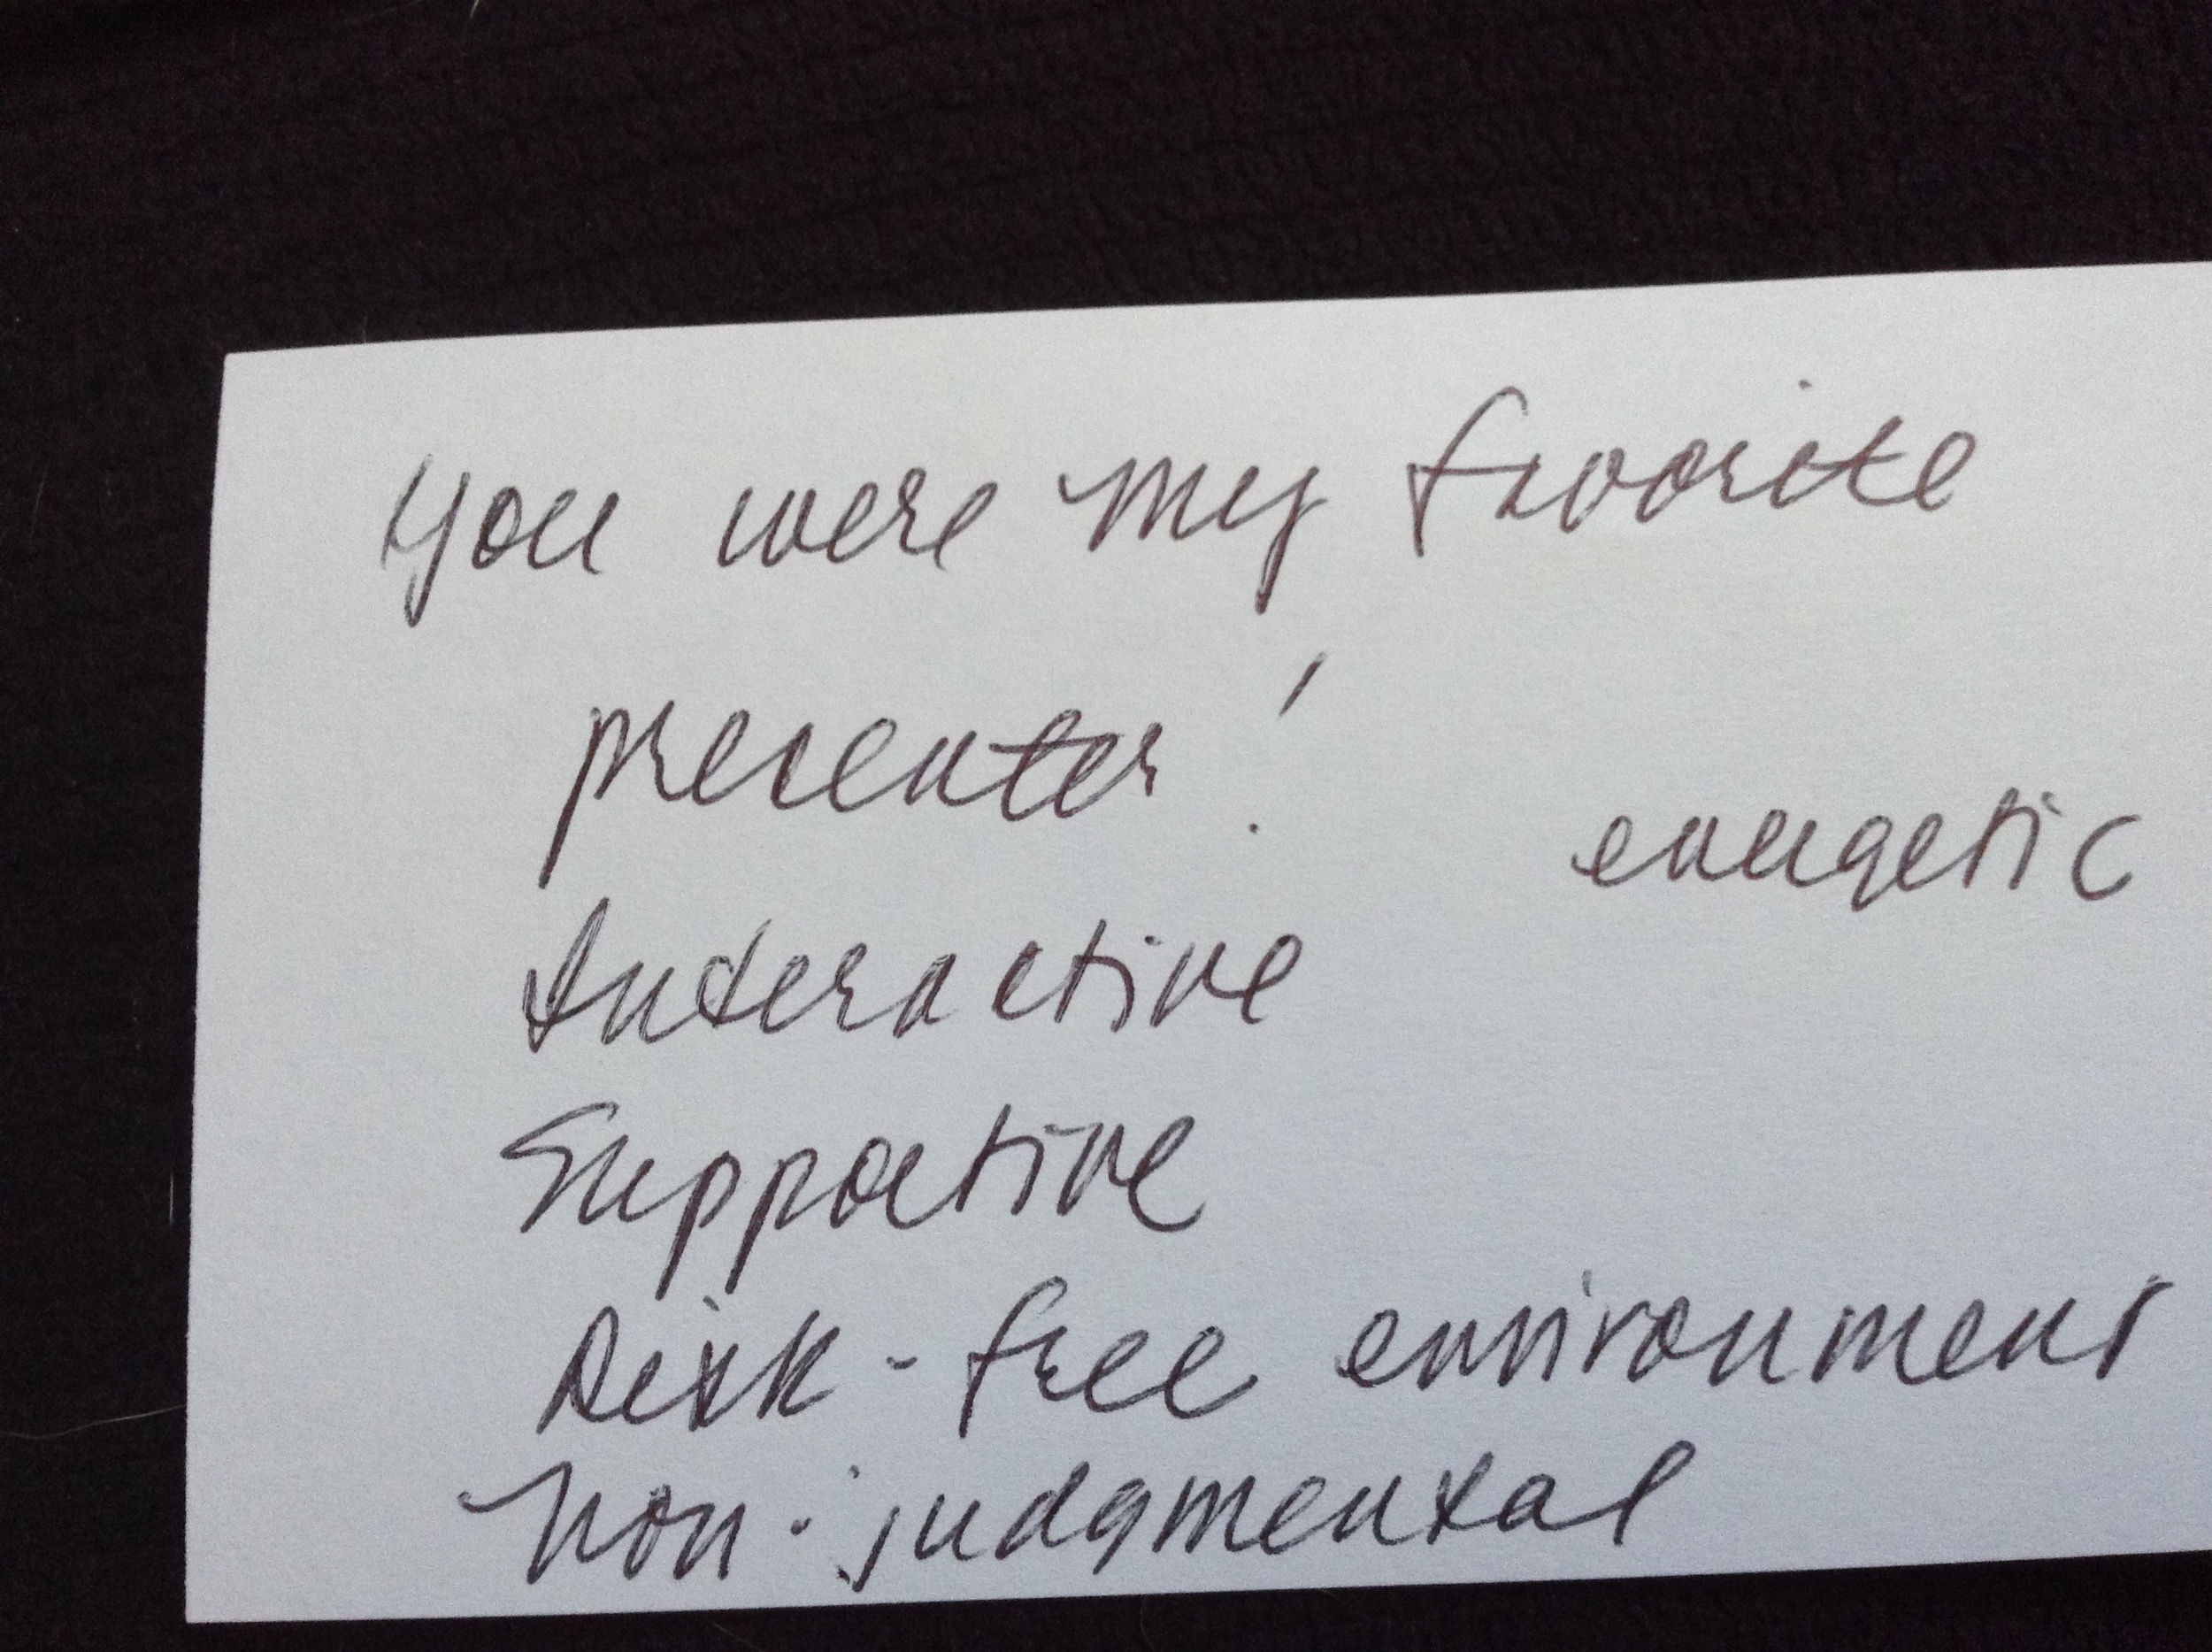 you were my favorite
presenter!
energetic
Interactive
Supportive
Risk-free environment
non-judgmental